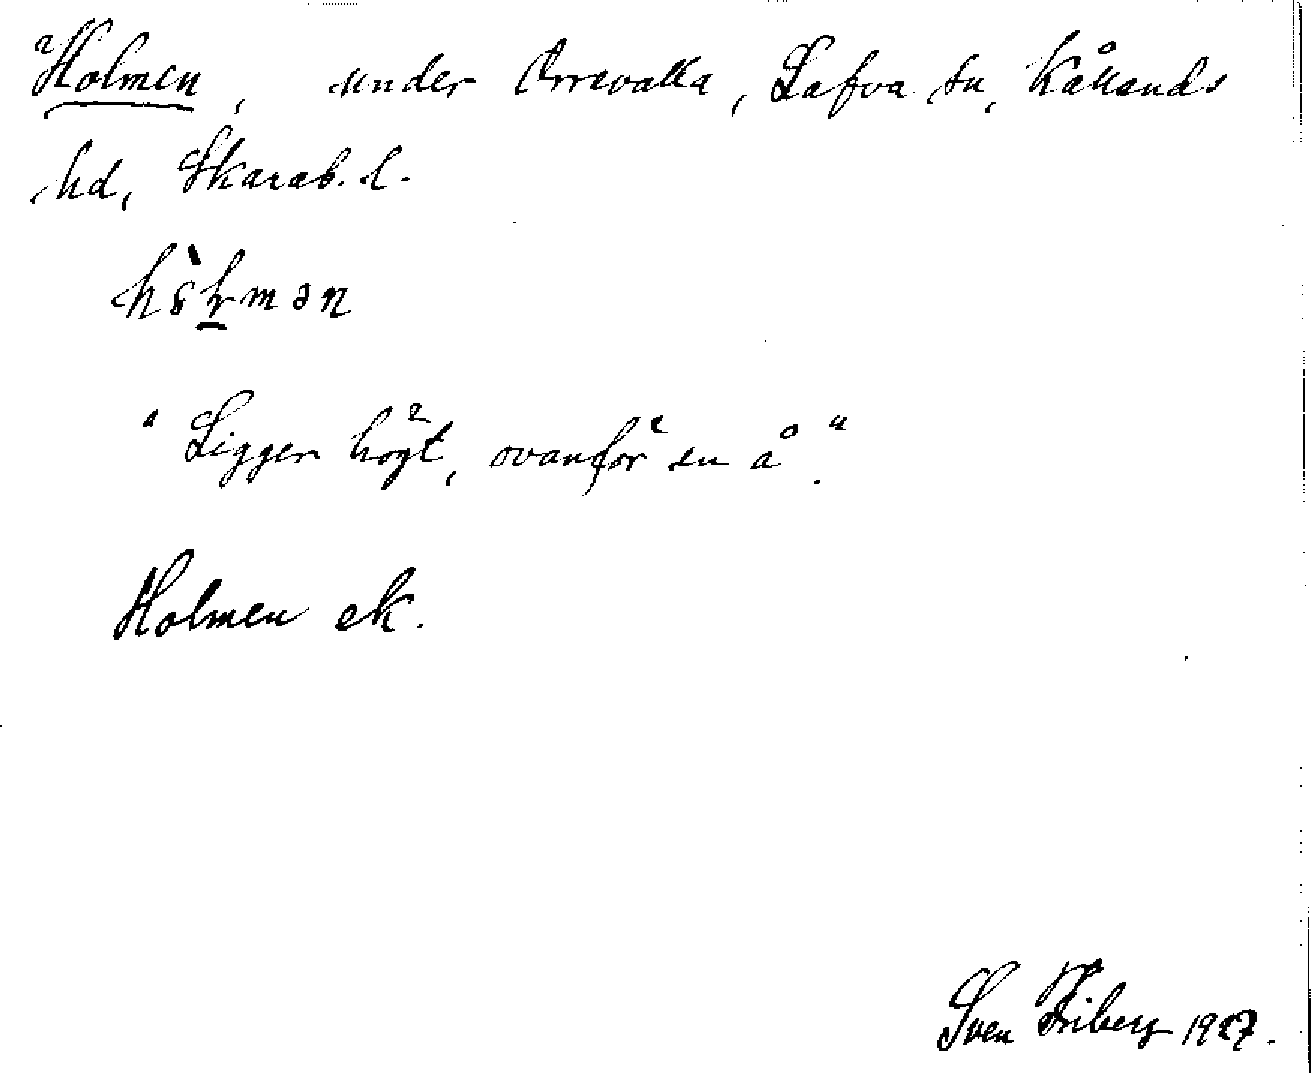 Holmen, under Orrevalla, Lafva sn, Kållands
hd, Skarab. l.
"Ligger högt, ovanför en å".
Holmen ek.
Sven Friberg 1927.